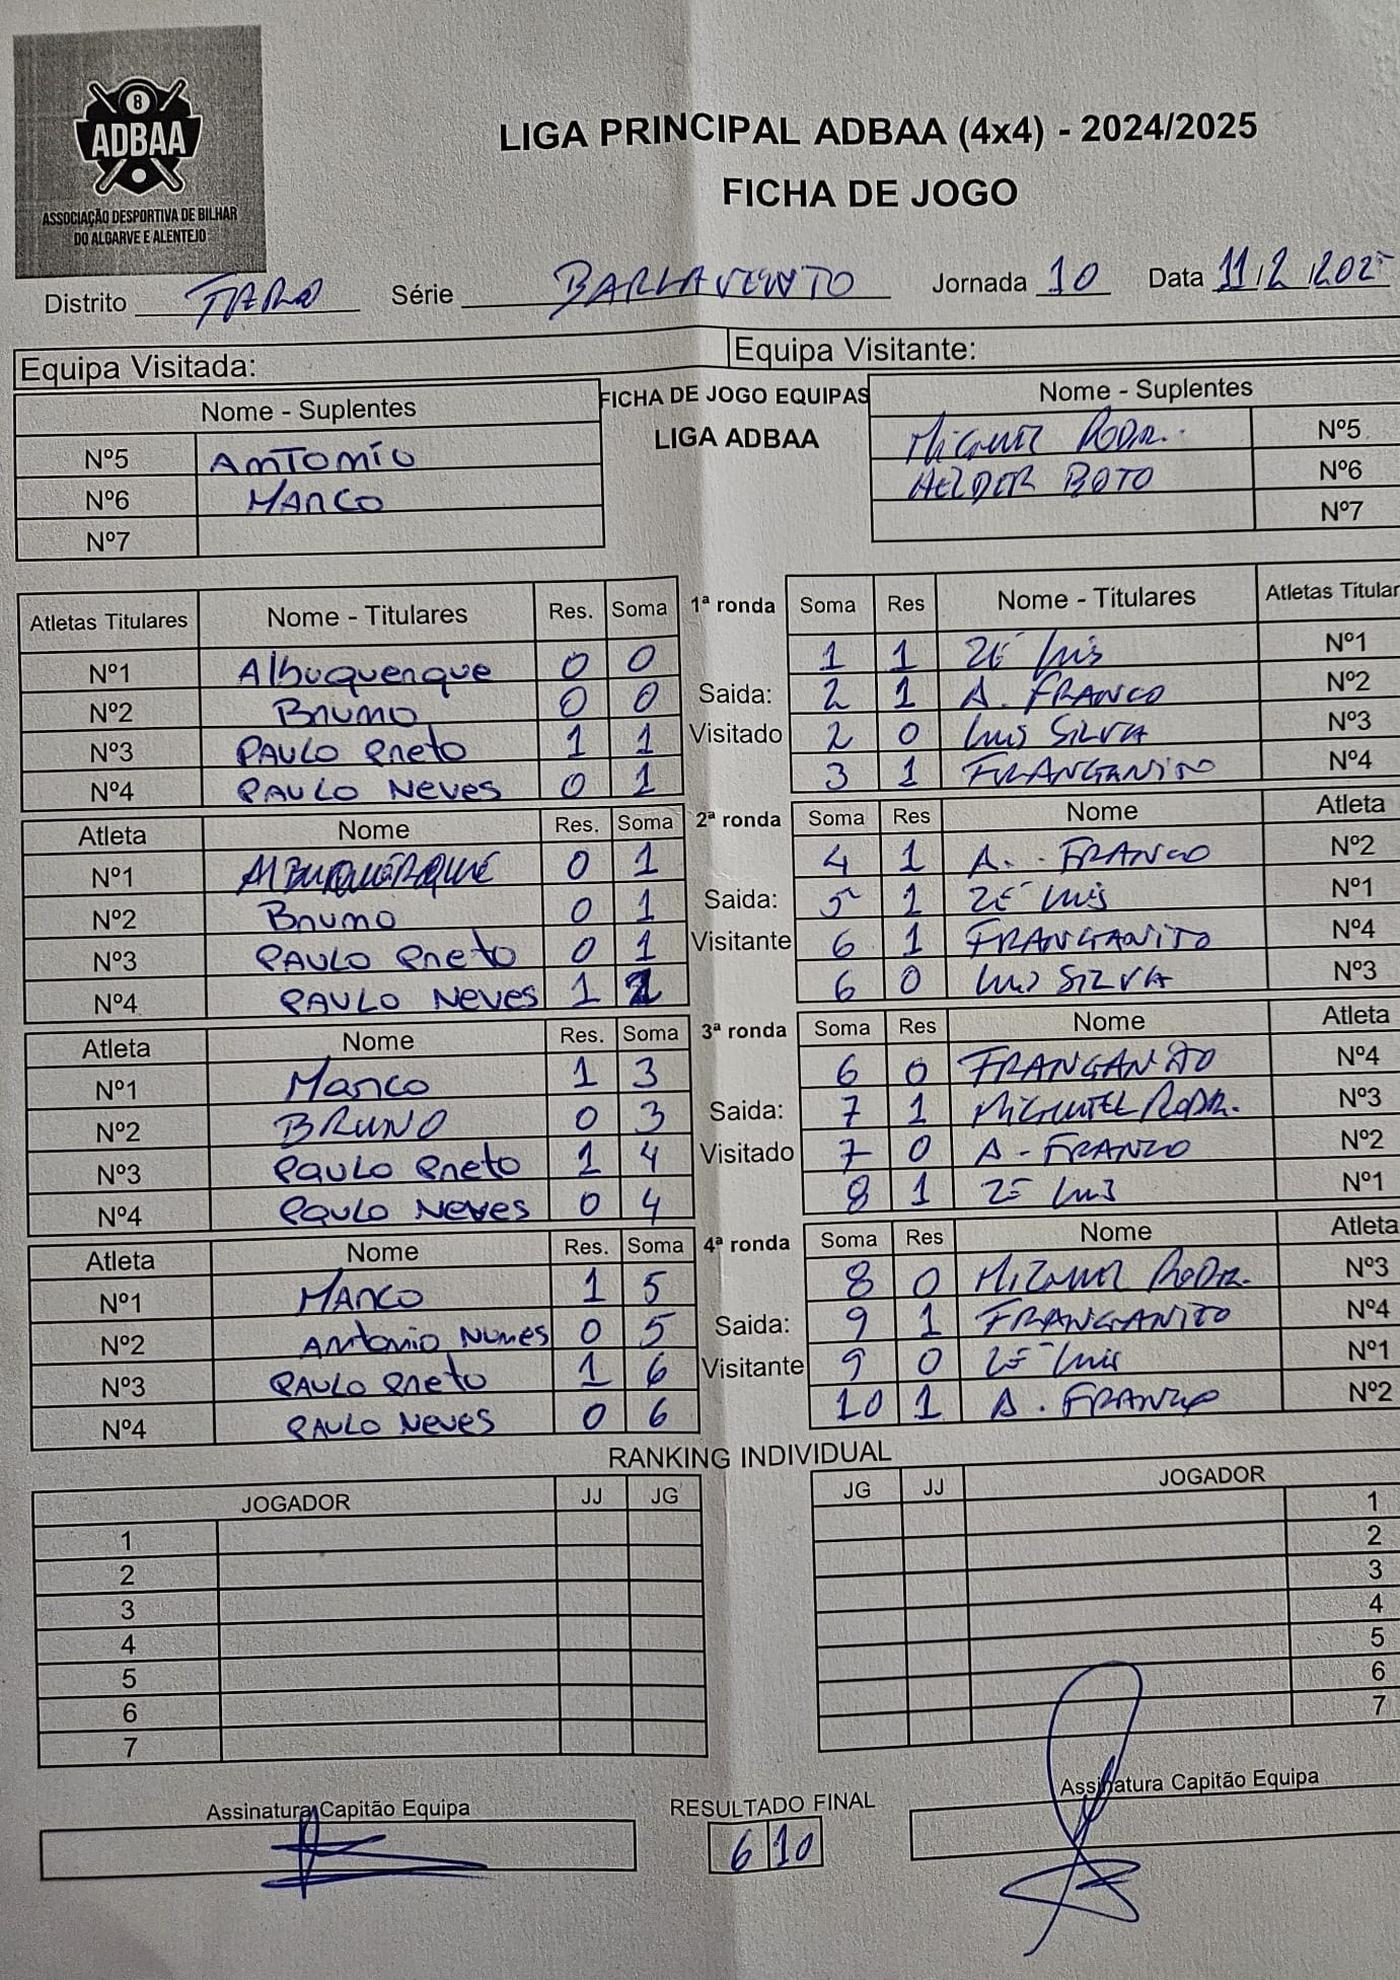 8
ADBAA
ASSOCIAÇÃO DESPORTIVA DE BILHAR
DO ALGARVE E ALENTEJO
LIGA PRINCIPAL ADBAA (4x4) - 2024/2025
FICHA DE JOGO
Distrito FARO Série BARLAVENTO Jornada 10 Data 11/2/2025
Equipa Visitada: Equipa Visitante:
Nome - Suplentes FICHA DE JOGO EQUIPAS Nome - Suplentes
LIGA ADBAA
Nº5 ANTONIO MIGUEL RODR. Nº5
Nº6 MARCO HELDER BOTO Nº6
Nº7 Nº7
Atletas Titulares Nome - Titulares Res. Soma 1ª ronda Soma Res Nome - Titulares Atletas Titular
Nº1 Albuquerque 0 0 1 1 ZÉ LUIS Nº1
Nº2 BRUNO 0 0 Saida: 2 1 A. FRANCO Nº2
Nº3 PAULO PRETO 1 1 Visitado 2 0 LUIS SILVA Nº3
Nº4 PAULO NEVES 0 1 3 1 FRANGANITO Nº4
Atleta Nome Res. Soma 2ª ronda Soma Res Nome Atleta
Nº1 ALBUQUERQUE 0 1 4 1 A. FRANCO Nº2
Nº2 BRUNO 0 1 Saida: 5 1 ZÉ LUIS Nº1
Nº3 PAULO PRETO 0 1 Visitante 6 1 FRANGANITO Nº4
Nº4 PAULO NEVES 1 2 6 0 LUIS SILVA Nº3
Atleta Nome Res. Soma 3ª ronda Soma Res Nome Atleta
Nº1 MARCO 1 3 6 0 FRANGANITO Nº4
Nº2 BRUNO 0 3 Saida: 7 1 MIGUEL RODR. Nº3
Nº3 PAULO PRETO 1 4 Visitado 7 0 A - FRANCO Nº2
Nº4 PAULO NEVES 0 4 8 1 ZÉ LUIS Nº1
Atleta Nome Res. Soma 4ª ronda Soma Res Nome Atleta
Nº1 MARCO 1 5 8 0 MIGUEL RODR. Nº3
Nº2 ANTONIO NUNES 0 5 Saida: 9 1 FRANGANITO Nº4
Nº3 PAULO PRETO 1 6 Visitante 9 0 ZÉ LUIS Nº1
Nº4 PAULO NEVES 0 6 10 1 A. FRANCO Nº2
RANKING INDIVIDUAL
JOGADOR JJ JG JG JJ JOGADOR
1 1
2 2
3 3
4 4
5 5
6 6
7 7
Assinatura Capitão Equipa RESULTADO FINAL Assinatura Capitão Equipa
6 10